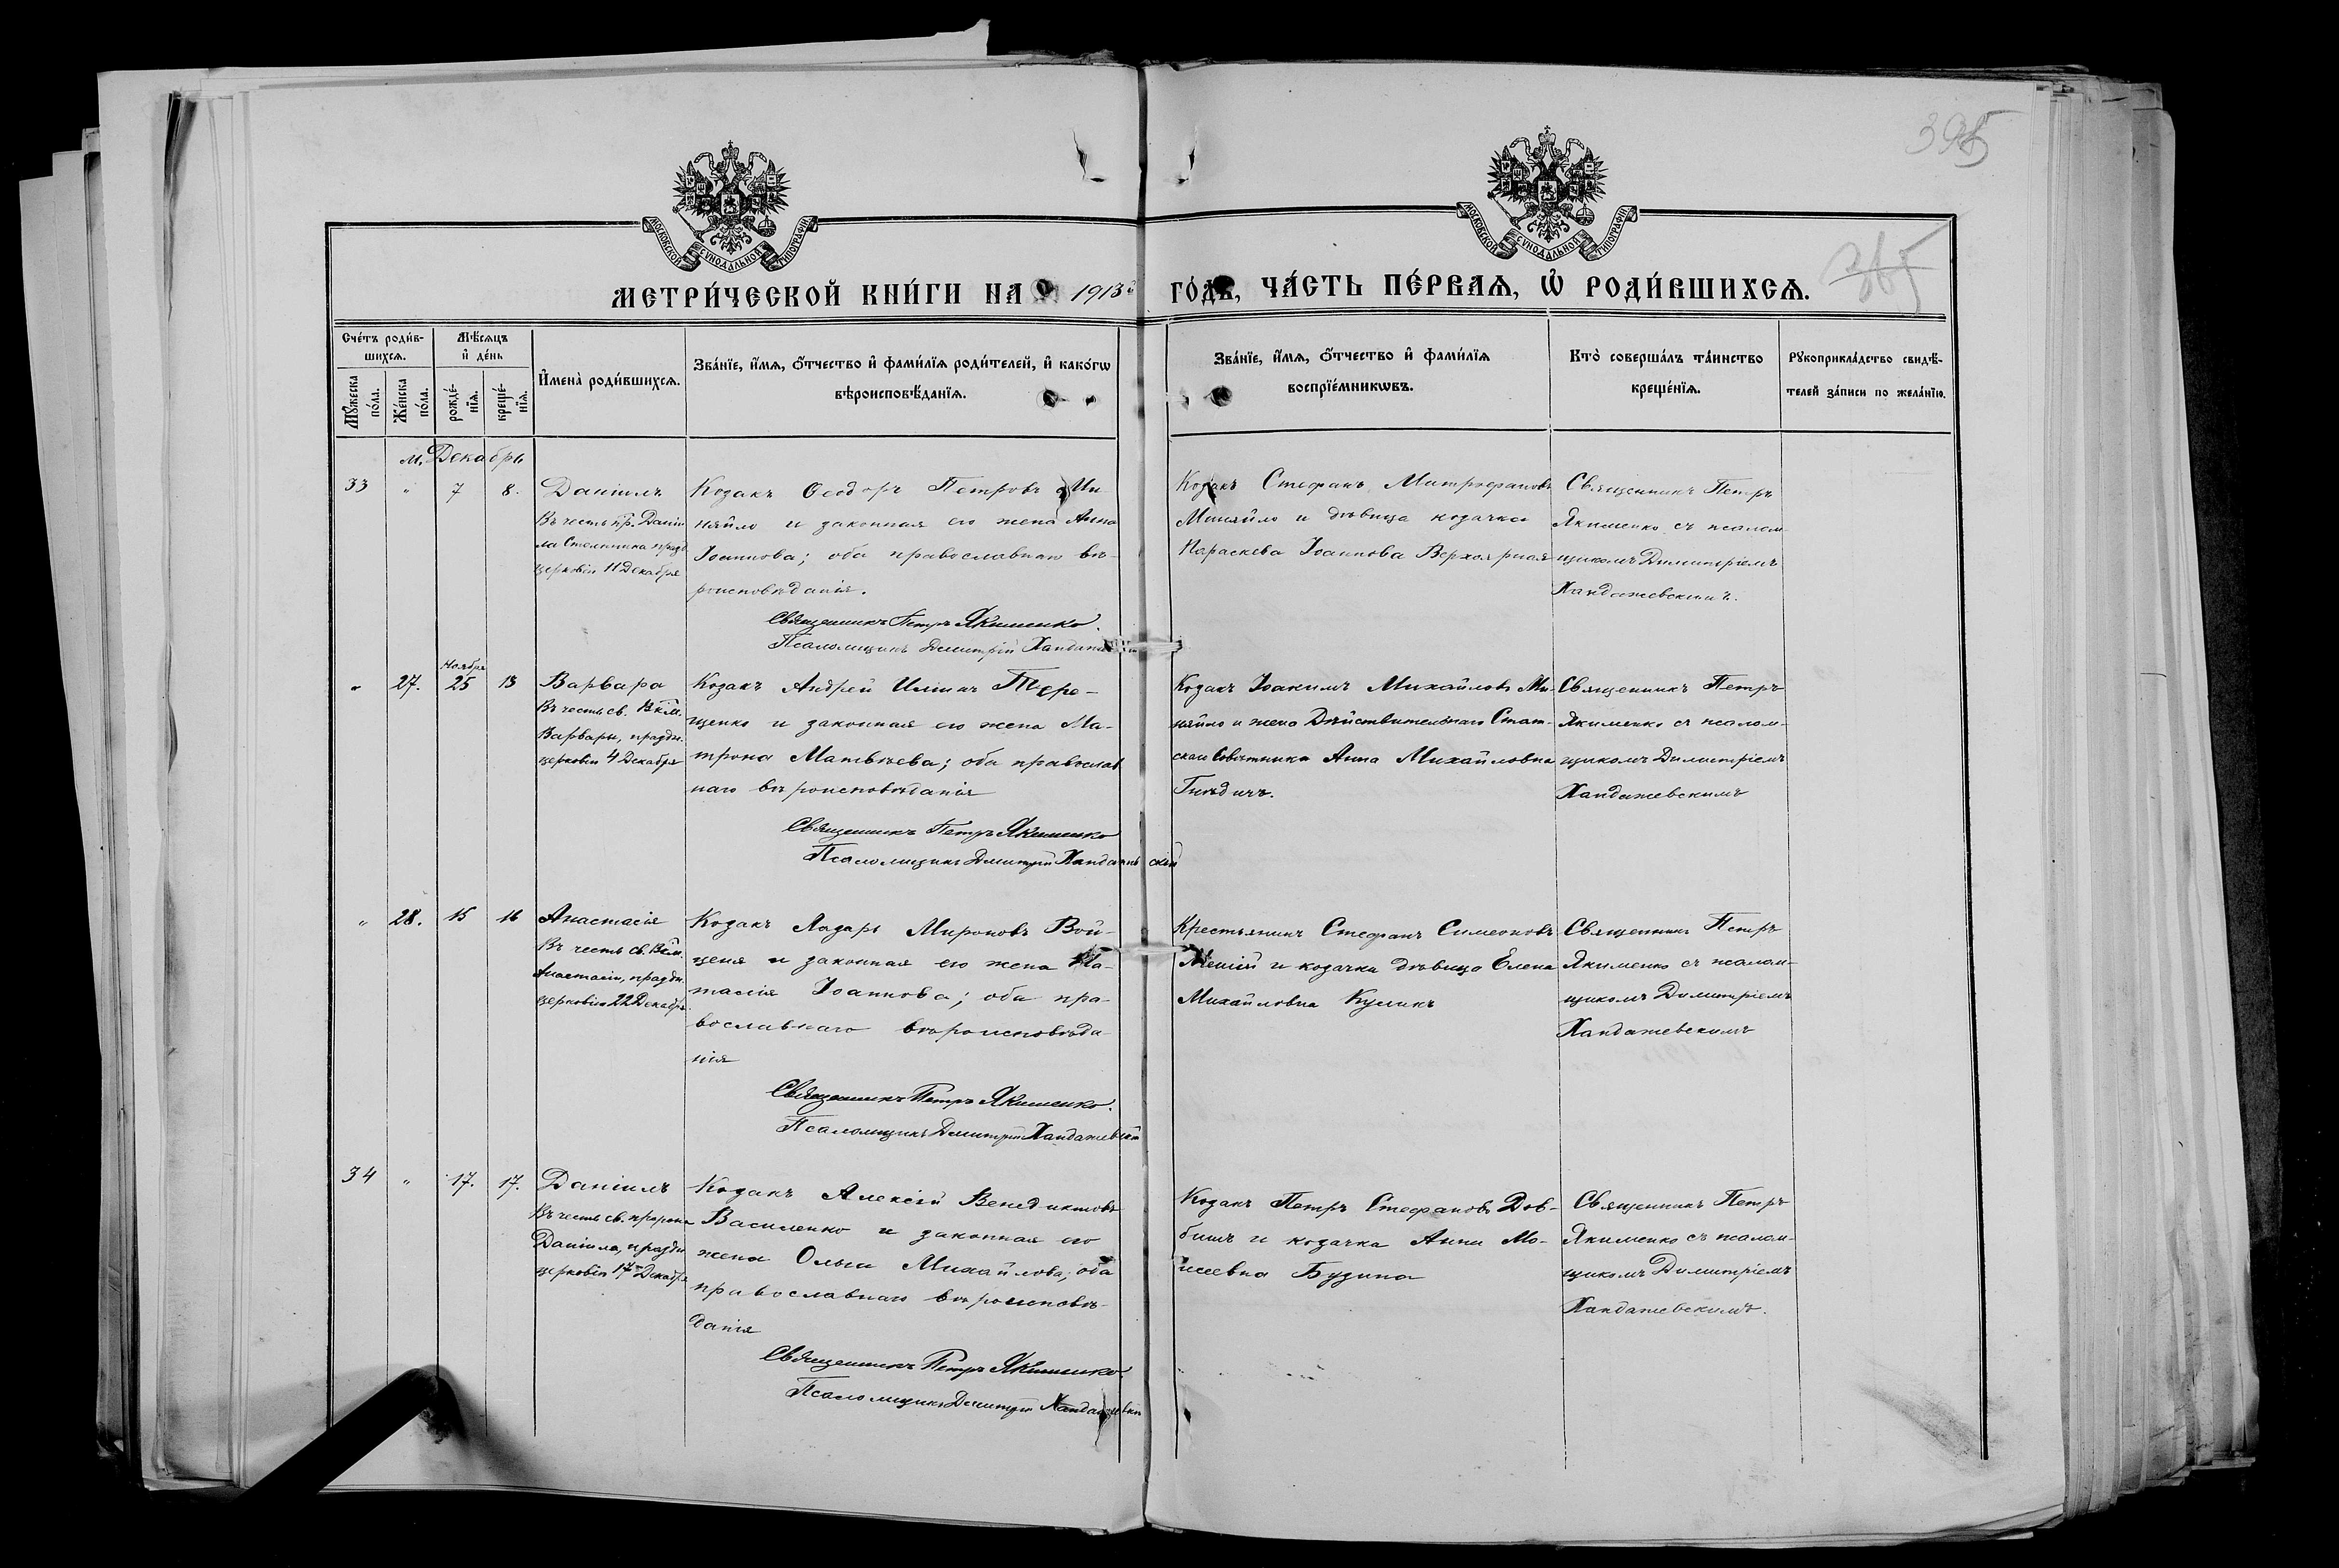 395
365
МОСКОВСКОЙ СУНОДАЛЬНОЙ ТИПОГРАФІИ
МОСКОВСКОЙ СУНОДАЛЬНОЙ ТИПОГРАФІИ
МЕТРИ́ЧЕСКОЙ КНИ́ГИ НА 1913й ГО́ДЪ, ЧА́СТЬ ПЕ́РВАѦ, Ѽ РОДИ́ВШИХСѦ.
Сче́тъ роди́в-
шихсѧ.
Мꙋ́жеска
по́ла.
Же́нска
по́ла.
Мѣ́сѧцъ
и҆ де́нь
рожде́-
нїѧ.
креще́-
нїѧ.
И҆мена̀ роди́вшихсѧ.
Зва́нїе, и҆́мѧ, ѻ҆́тчество и҆ фами́лїѧ роди́телей, и҆ како́гѡ
вѣроисповѣ́данїѧ.
Зва́нїе, и҆́мѧ, ѻ҆́тчество и҆ фами́лїѧ
воспрїе́мникѡвъ.
Кто̀ соверша́лъ та́инство
креще́нїѧ.
Рꙋкоприкла́дство свидѣ́-
телей за́писи по жела́нїю.
м. Декабрь
33 " 7 8.
Даніилъ
Въ честь пр. Даніи
ла Столпника празд
церковію 11 Декабря
Козакъ Ѳеодоръ Петровъ Ми
няйло и законная его жена Анна
Іоаннова; оба православнаго вѣ-
роисповѣданія.
Священникъ Петръ Якименко.
Псаломщикъ Димитрій
Козакъ Стефанъ Митрофановъ
Миняйло и дѣвица козачка
Параскева Іоаннова
Священникъ Петръ
Якименко съ псалом-
щикомъ Димитріемъ
Хандажевскимъ.
" 27. Ноября 25 13
Варвара
Въ честь св. Вкм.
Варвары, праздн.
церковію 4 Декабря
Козакъ Андрей Илiинъ Тере-
щенко и законная его жена Ма-
трона Матвѣева; оба православ
наго вѣроисповѣданія
Священникъ Петръ Якименко
Псаломщикъ Димитрій Хандажевскій
Козакъ Іоакимъ Михайловъ Ми-
няйло и жена Дѣйствительнаго Стат-
скаго Совѣтника Анна Михайловна
Гнѣдичъ.
Священникъ Петръ
Якименко съ псалом-
щикомъ Димитріемъ
Хандажевскимъ
" 28. 15 16
Анастасія
Въ честь св. Вкм.
Анастасіи, праздн.
церковію 22 Декабря.
Козакъ Лазарь Мироновъ Вой-
ценя и законная его жена На-
талія Іоаннова; оба пра-
вославнаго вѣроисповѣда
нія
Священникъ Петръ Якименко.
Псаломщикъ Димитрій Хандажевскій
Крестьянинъ Стефанъ Симеоновъ
и козачка дѣвица Елена
Михайловна Куликъ
Священникъ Петръ
Якименко съ псалом-
щикомъ Димитріемъ
Хандажевскимъ
34 " 17. 17.
Даніилъ
Въ честь св. пророка
Даніила, праздн
церковію 17го Декабря
Козакъ Алексій Венедиктовъ
Василенко и законная его
жена Ольга Михайлова; оба
православнаго вѣроисповѣ-
данія
Священникъ Петръ Якименко
Псаломщикъ Димитрій Хандажевскій
Козакъ Петръ Стефановъ Дов-
бишъ и козачка Анна Мо-
исеевна Бузина
Священникъ Петръ
Якименко съ псалом-
щикомъ Димитріемъ
Хандажевскимъ.